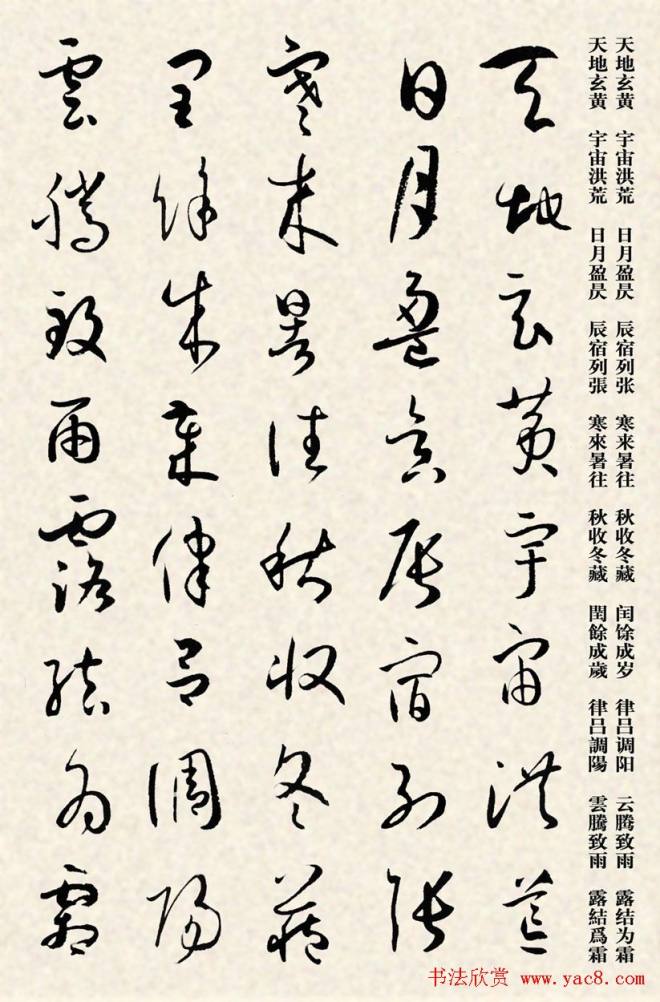 天地玄黄 宇宙洪荒 日月盈昃 辰宿列张 寒来暑往 秋收冬藏 闰馀成岁 律吕调阳 云腾致雨 露结为霜
天地玄黄 宇宙洪荒 日月盈昃 辰宿列張 寒來暑往 秋收冬藏 閏餘成歲 律呂調陽 雲騰致雨 露結爲霜
天地玄黄宇宙洪荒
日月盈昃辰宿列張
寒来暑往秋收冬藏
閏餘成歲律呂調陽
雲騰致雨露結為霜
书法欣赏 www.yac8.com